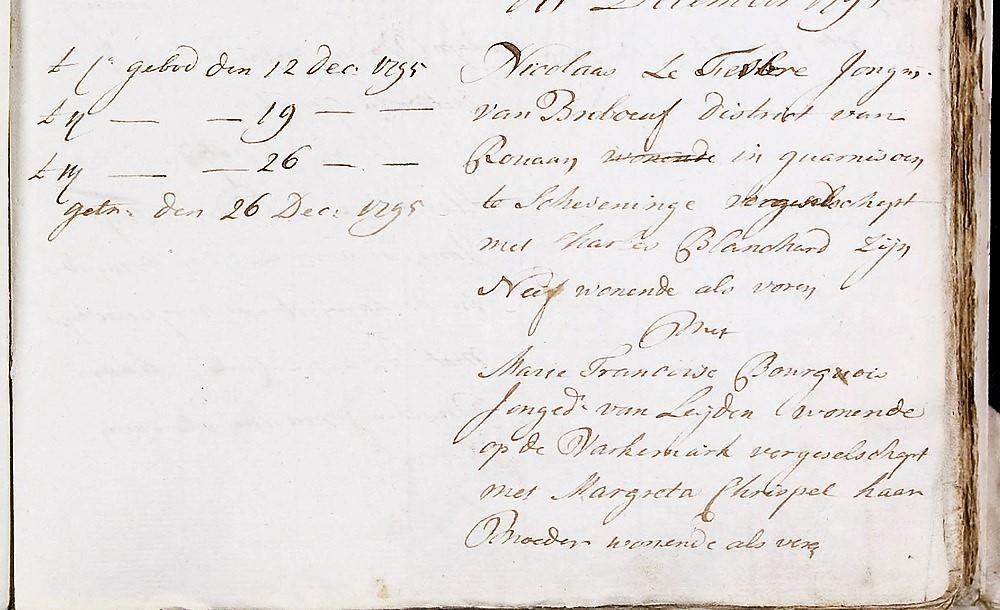 December 1795
t 1e gebod den 12 Dec: 1795
t 2 — — 19 — —
t 3 — — 26 — —
getr: den 26 Dec: 1795
Nicolaas Le Jongm.
van Bnboeuf District van
Rouaan wonende in guarnisoen
te Scheveninge vergeselschept
met Charles Blanchard zijn
Neef wonende als voren
Met
Marie Francoise Bourguois
Jonged. van Leijden wonende
op de Varkemark vergeselschept
met Margreta Chrispel haar
Moeder wonende als vore